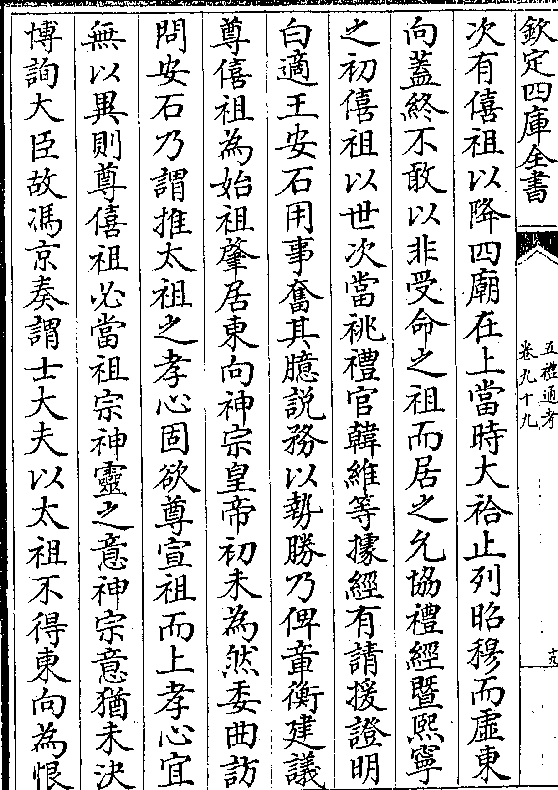 欽定四庫全書
五禮通考
卷九十九
十五
次有僖祖以降四廟在上當時大祫止列昭穆而虛東
向蓋終不敢以非受命之祖而居之允協禮經暨熙寧
之初僖祖以世次當祧禮官韓維等據經有請援證明
白適王安石用事奮其臆説務以勢勝乃俾章衡建議
尊僖祖為始祖肇居東向神宗皇帝初未為然委曲訪
問安石乃謂推太祖之孝心固欲尊宣祖而上孝心宜
無以異則尊僖祖必當祖宗神靈之意神宗意猶未決
博詢大臣故馮京奏謂士大夫以太祖不得東向為恨